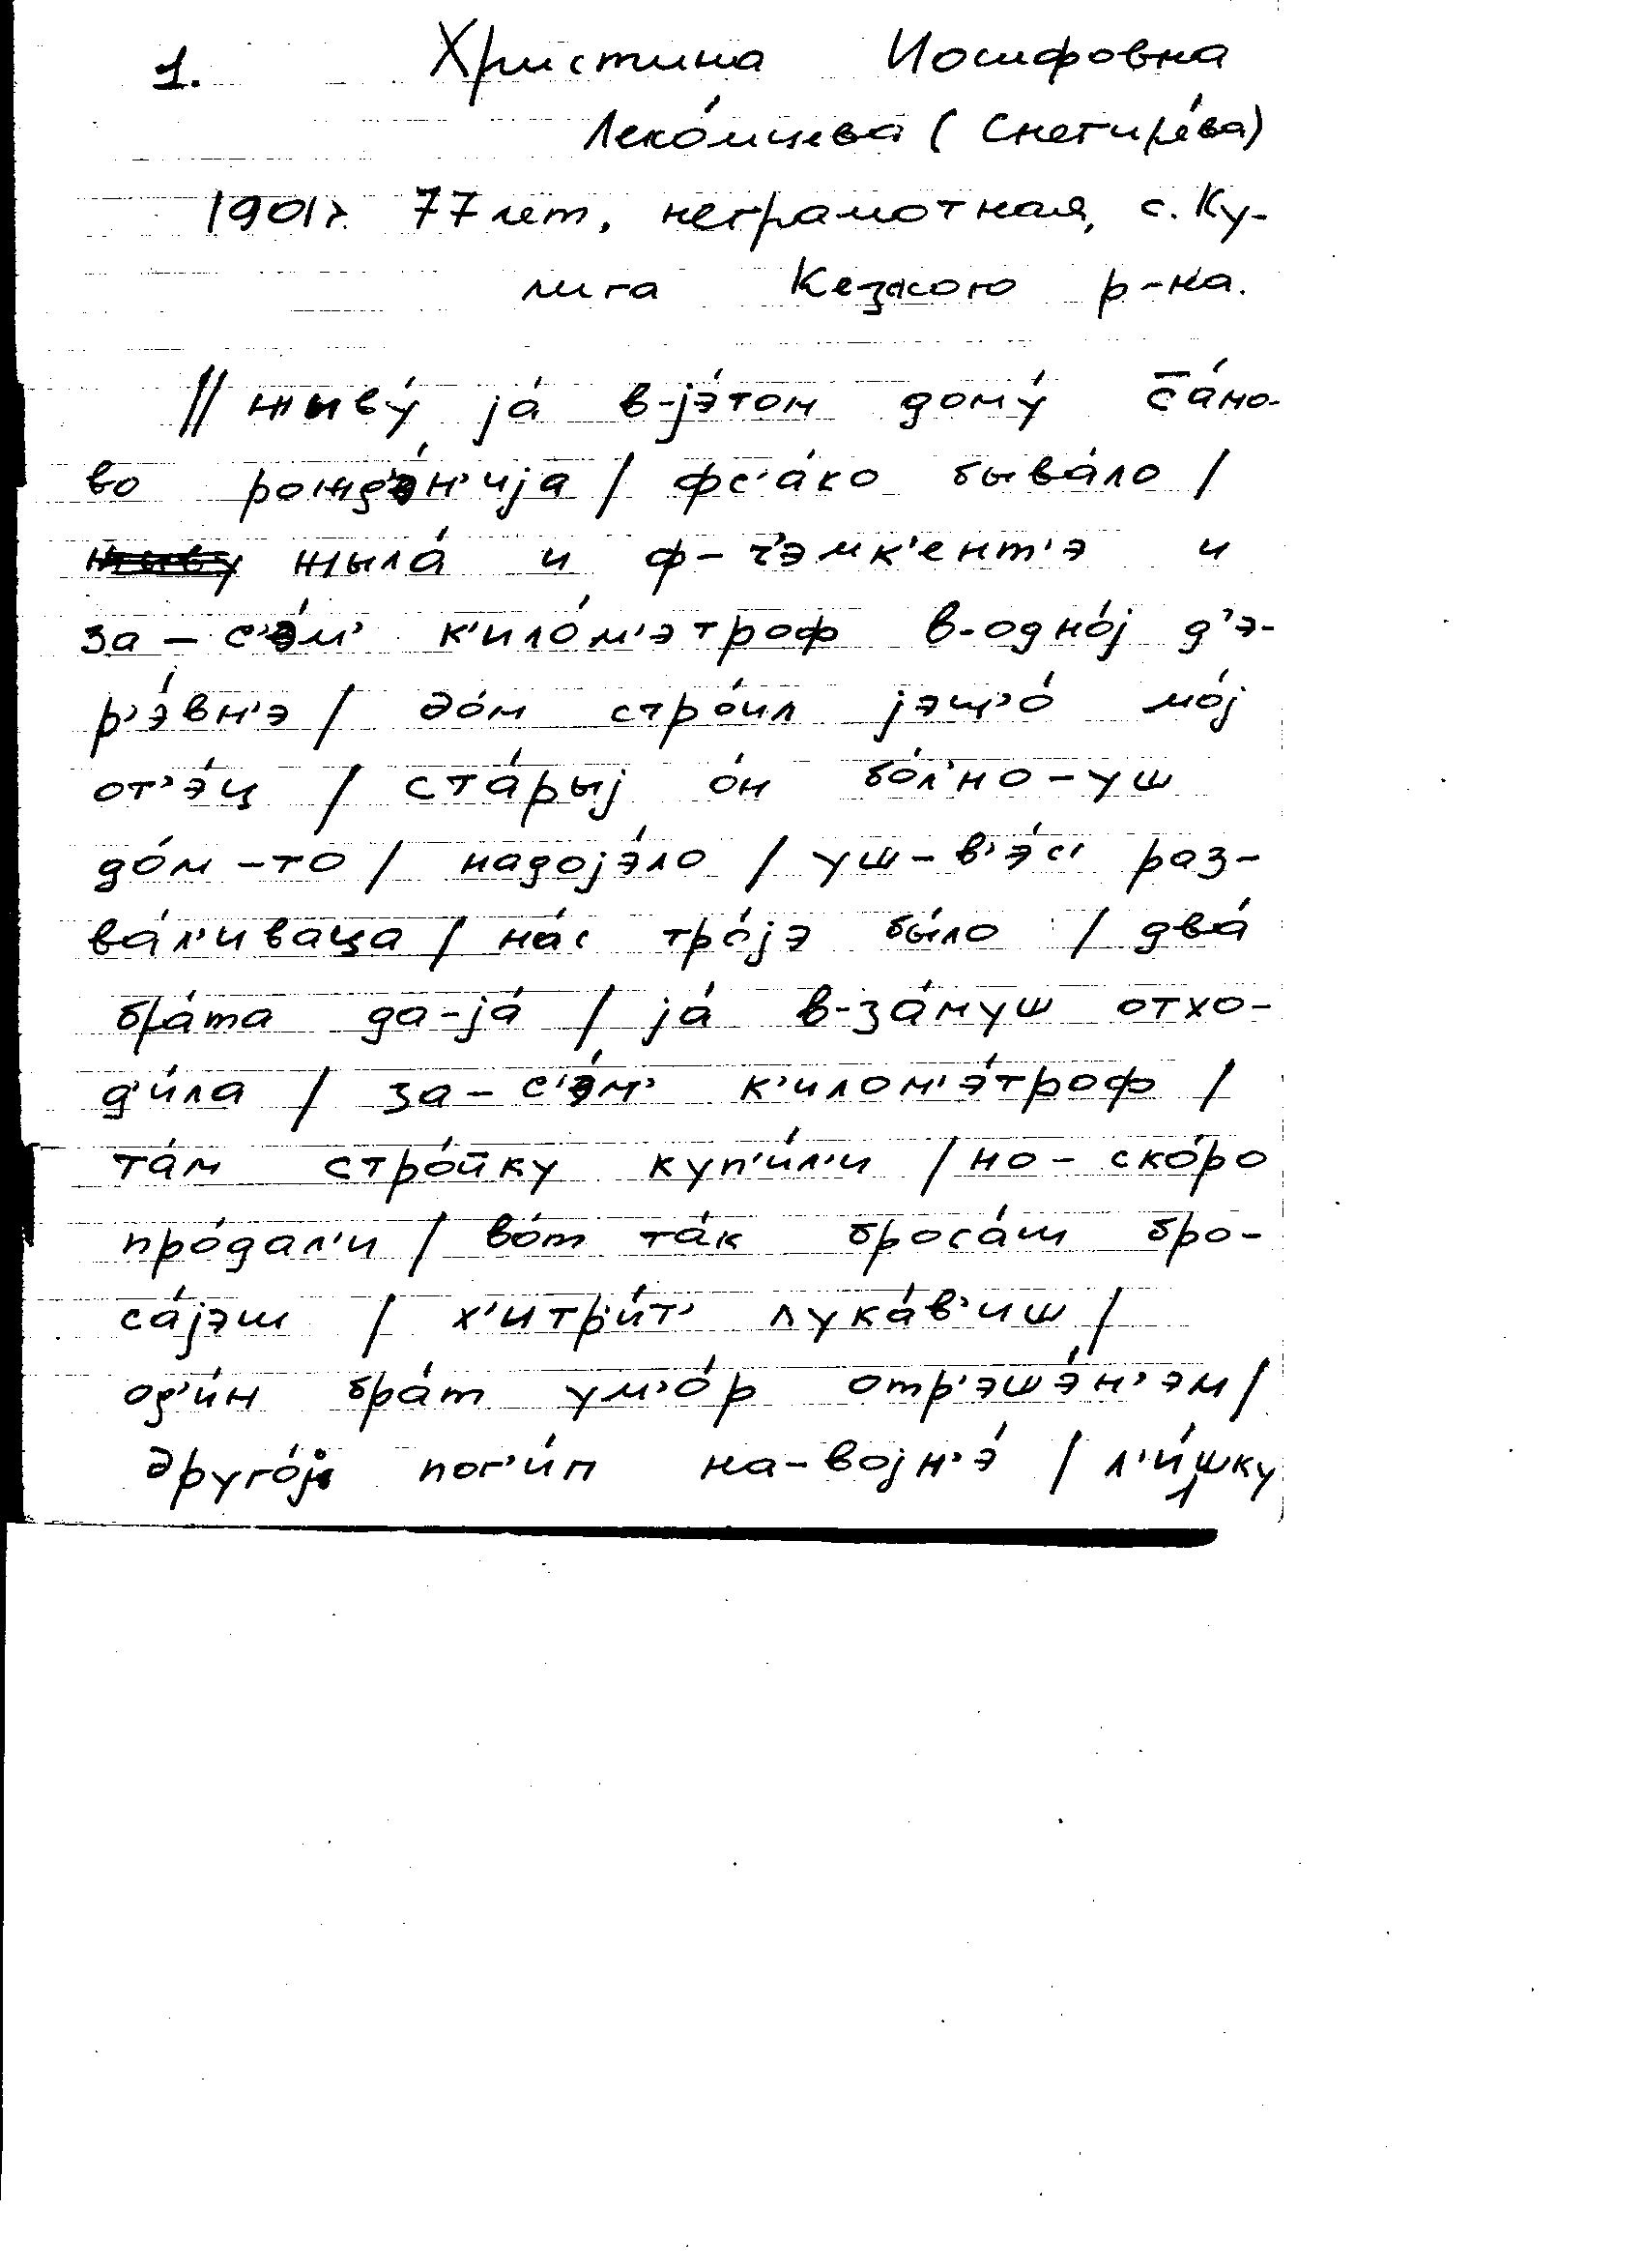 1. Христина Иосифовна
Леко́мцева (Снегирёва)
1901 г. 77 лет, неграмотная, с. Ку-
лига Кезского р-на.
// жыву́ jа́ в-jэ́том дому́ с̄а́мо-
во рожд'э́н'иjа / фс'а́ко быва́ло /
жыву жыла́ и ф-ч'эмк'ент'э и
за-с'э́м' к'ило́м'этроф в-одно́j д'э-
р'э́вн'э / до́м стро́ил jэщ'о́ мо́j
от'э́ц / ста́рыj о́н бо́л'но-уш
до́м-то / надоjэ́ло / уш-в'э́с' раз-
ва́л'иваца / на́с тро́jэ бы́ло / два́
бра́та да-jа́ / jа́ в-за́муш отхо-
д'и́ла / за-с'э́м' к'илом'э́троф /
та́м стро́йку куп'и́л'и / но-ско́ро
про́дал'и / во́т та́к броса́ш бро-
са́jэш / х'итр'и́т' лука́в'иш /
од'и́н бра́т ум'о́р отр'эшэ́н'эм /
друго́j пог'и́п на-воjн'э́ / л'и́шку
1